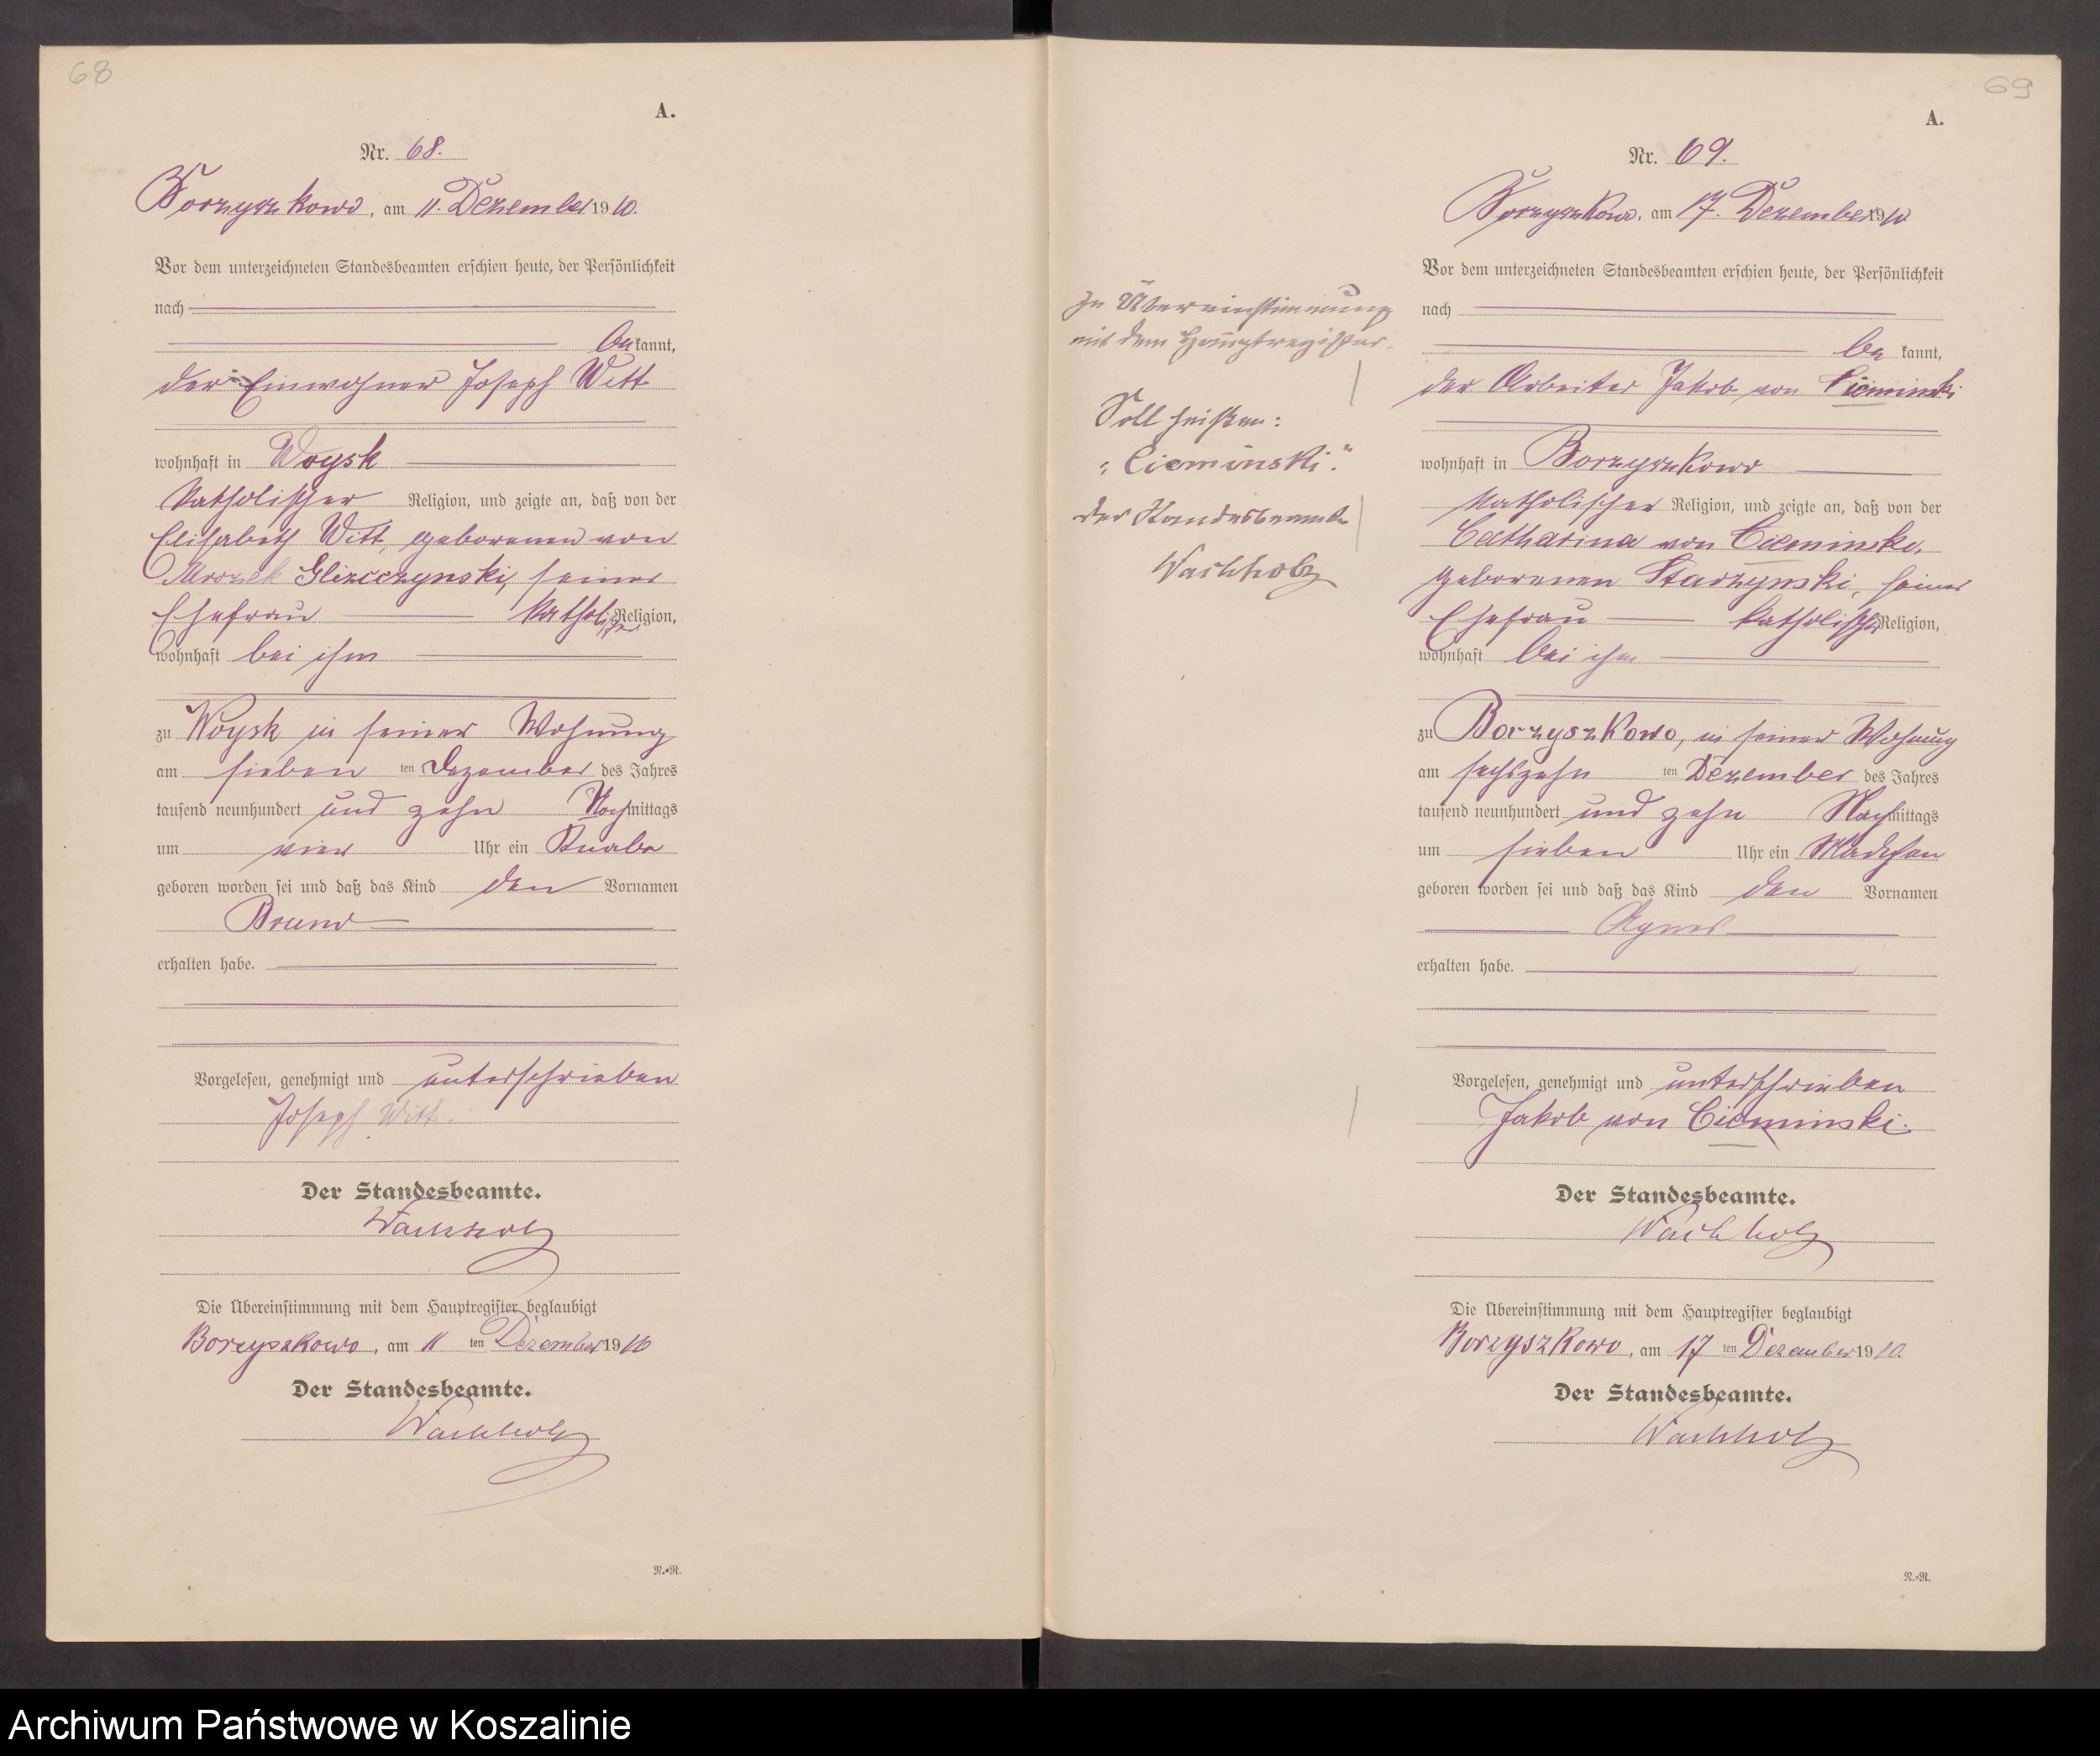 68
A.
Nr. 68.
Borzyszkowo, am 11. Dezember 1910.
Vor dem unterzeichneten Standesbeamten erschien heute, der Persönlichkeit
nach
be kannt,
der Einwohner Joseph Witt
wohnhaft in Woysk
katholischer Religion, und zeigte an, daß von der
Elisabeth Witt, geborenen von
Mrozek Gliszczynski, seiner
Ehefrau katholischer Religion,
wohnhaft bei ihm
zu Woysk in seiner Wohnung
am sieben ten Dezember des Jahres
tausend neunhundert und zehn Nachmittags
um vier Uhr ein Knabe
geboren worden sei und daß das Kind den Vornamen
Bruno
erhalten habe.
Vorgelesen, genehmigt und unterschrieben
Joseph Witt.
Der Standesbeamte.
Wachholz
Die Übereinstimmung mit dem Hauptregister beglaubigt
Borzyszkowo, am 11 ten Dezember 1910
Der Standesbeamte.
Wachholz
N.=R.
69
A.
Nr. 69.
Borzyszkowo, am 17. Dezember 1910
Vor dem unterzeichneten Standesbeamten erschien heute, der Persönlichkeit
nach
be kannt,
der Arbeiter Jakob von Cieminski
wohnhaft in Borzyszkowo
katholischer Religion, und zeigte an, daß von der
Catharina von Cieminski,
geborenen Starzynski, seiner
Ehefrau katholischer Religion,
wohnhaft bei ihm
zu Borzyszkowo, in seiner Wohnung
am sechszehn ten Dezember des Jahres
tausend neunhundert und zehn Nachmittags
um sieben Uhr ein Mädchen
geboren worden sei und daß das Kind den Vornamen
Agnes
erhalten habe.
Vorgelesen, genehmigt und unterschrieben
Jakob von Cieminski.
Der Standesbeamte.
Wachholz
Die Übereinstimmung mit dem Hauptregister beglaubigt
Borzyszkowo, am 17 ten Dezember 1910.
Der Standesbeamte.
Wachholz
N.=R.
In Übereinstimmung
mit dem Hauptregister.
Soll heißen:
"Cieminski."
der Standesbeamte
Wachholz
Archiwum Państwowe w Koszalinie